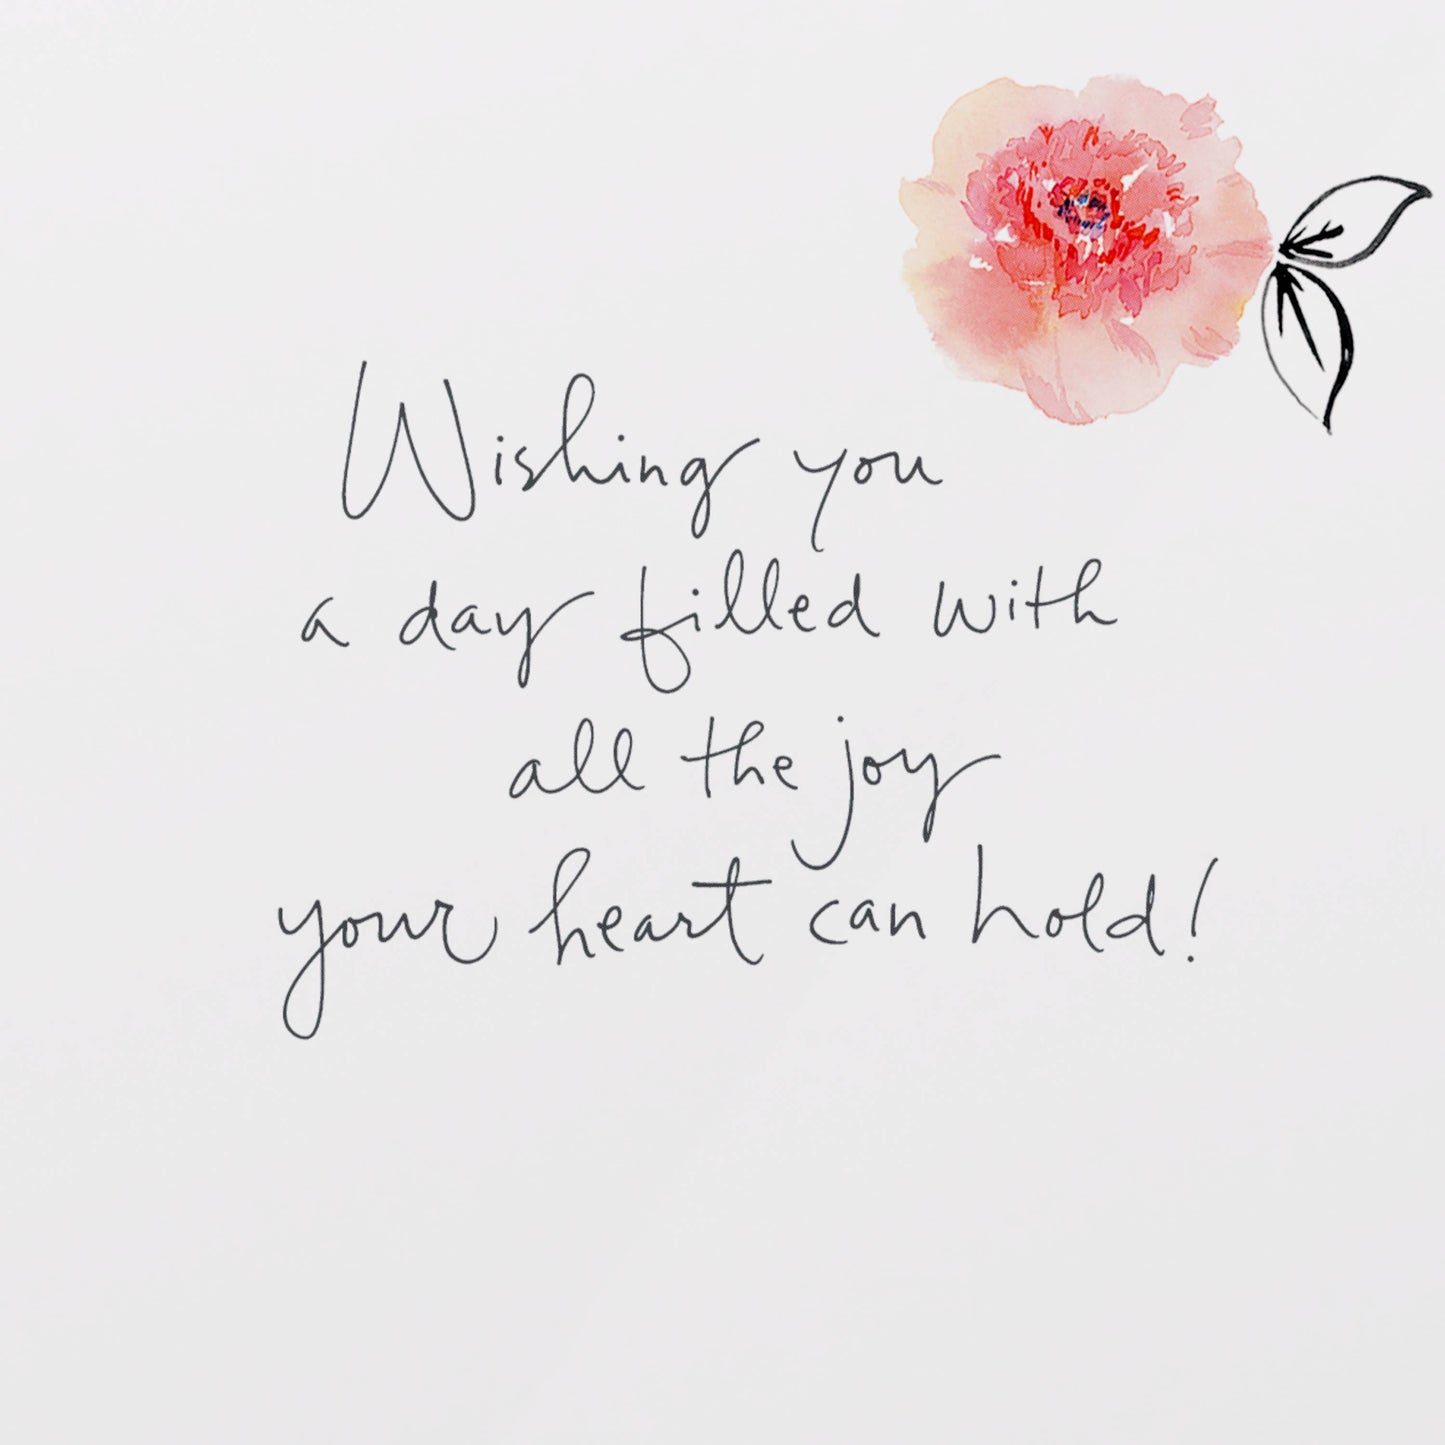 Wishing you
a day filled with
all the joy
your heart can hold!